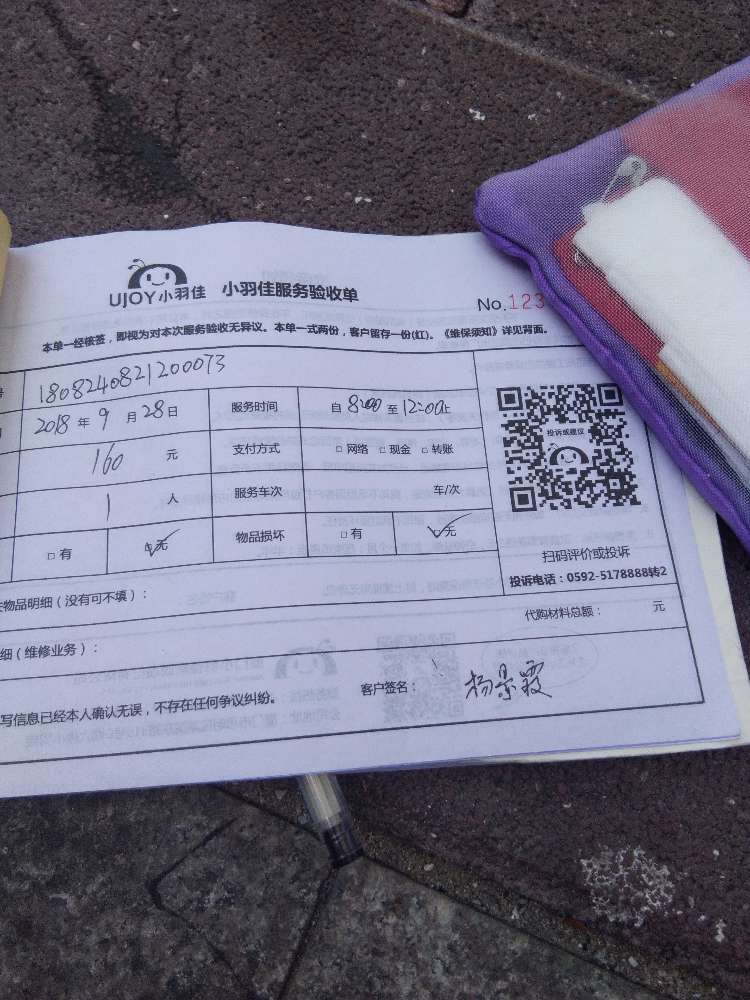 UJOY小羽佳 小羽佳服务验收单
No.123
本单一经核签，即视为对本次服务验收无异议。本单一式两份，客户留存一份(红)。《维保须知》详见背面。
号 1808240821200073
2018年9月28日 服务时间 自8:00至12:00止
160元 支付方式 □网络 □现金 □转账
投诉或建议
1人 服务车次 车/次
□有 □无 物品损坏 □有 □无
扫码评价或投诉
投诉电话：0592-5178888转2
物品明细（没有可不填）：
代购材料总额： 元
细（维修业务）：
写信息已经本人确认无误，不存在任何争议纠纷。 客户签名： 杨景霞